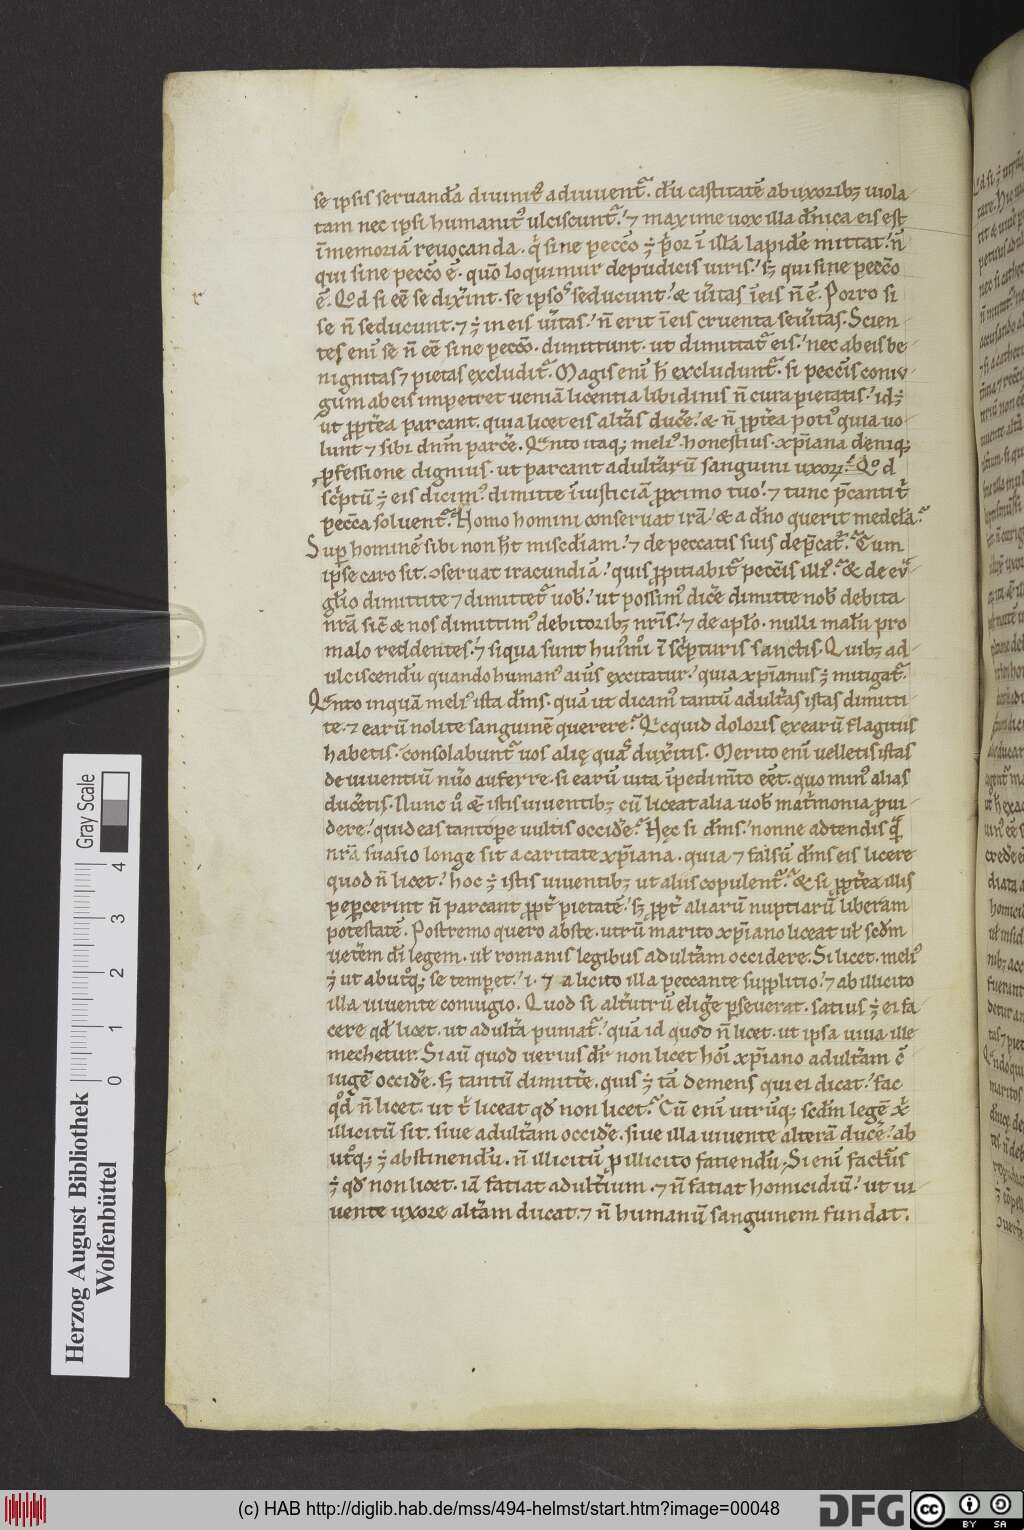 se ipsis seruanda diuinitꝰ adiuuent᷑. du̅ castitate̅ ab uxoribꝫ uiola
tam nec ipsi humanitꝰ ulciscunt᷑. ⁊ maxime uox illa dn̅ica eis est
i̅ memoria̅ reuocanda. qͥ sine pecc̅o ÷ pͥor i̅ illa̅ lapide̅ mittat. n̅
qui sine pecc̅o e̅. quo̅ loquimur de pudicis uiris. sꝫ qui sine pecc̅o
e̅. Qd̅ si ee̅ se dixͬint. se ipsos seducunt. & uͬitas i̅ eis n̅ e̅. Porro si
se n̅ seducunt. ⁊ ÷ in eis uͬitas. n̅ erit i̅ eis cruenta seuͬitas. Scien
tes eni̅ se n̅ ee̅ sine pecc̅o. dimittunt. ut dimittat᷑ eis. nec ab eis be
nignitas ⁊ pietas excludit᷑. Magis eni̅ h̅ excludunt᷑. si pecc̅is coniu
gum ab eis impetret uenia̅ licentia libidinis n̅ cura pietatis. id ÷
ut ꝓpt̅ea parcant. quia licet eis alt̅as duce̅. & n̅ ꝓpt̅ea potiꝰ quia uo
lunt ⁊ sibi dn̅m parce̅. Qͣnto itaqꝫ meliꝰ. honestius. xp̅iana deniqꝫ
ꝓfessione dignius. ut parcant adult̅aru̅ sanguini uxorꝝ. Qd̅
sc̅ptu̅ ÷ eis dicimꝰ. dimitte i̅iusticia̅ ꝓximo tuo. ⁊ tunc p̅canti t̅
pecc̅a soluent᷑. Homo homini conseruat ira̅. & a dn̅o querit medela̅.
Sup̅ homine̅ sibi non h̅t misc̅diam. ⁊ de peccatis suis dep̅cat᷑. Cum
ipse caro sit. ꝯseruat iracundia̅. quis ꝓpitiabit᷑ pecc̅is illiꝰ. & de eu̅
gl̅io dimittite ⁊ dimittet᷑ uob̅. ut possimꝰ dic̅e dimitte nob̅ debita
nr̅a sic̅ & nos dimittimꝰ debitoribꝫ nr̅is. ⁊ de apl̅o. nulli malu̅ pro
malo reddentes. ⁊ siqua sunt huiꝰmͦi i̅ sc̅pturis sanctis. Quibꝫ ad
ulciscendu̅ quando humanꝰ aiu̅s excitatur. quia xp̅ianus ÷ mitigat᷑.
Qͣnto inqua̅ meliꝰ ista dn̅s. qua̅ ut dicamꝰ tantu̅ adult̅as istas dimitti
te. ⁊ earu̅ nolite sanguine̅ querere. Qͥcquid doloris ex earu̅ flagitiis
habetis. consolabunt᷑ uos alie̜ quas dux̅itis. Merito eni̅ uelletis istas
de uiuentiu̅ nu̅o auferre. si earu̅ uita i̅pedim̅to ee̅t. quo minꝰ alias
duc̅etis. Nunc uͦ & istis uiuentibꝫ cu̅ liceat alia uob̅ mat̅monia ꝓui
dere. quid eas tantop̅e uultis occid̅e. He̜c si dn̅s. nonne adtendis qͣ̅
nr̅a suasio longe sit a caritate xp̅iana. quia ⁊ falsu̅ dn̅s eis licere
quod n̅ licet. hoc ÷ istis uiuentibꝫ ut aliis copulent᷑. & si ꝓpt̅ea illis
pep̅cerint n̅ parcant ꝓpt̅ pietate̅. sꝫ ꝓpt̅ aliaru̅ nuptiaru̅ liberam
potestate̅. Postremo quero abs te. utru̅ marito xp̅iano liceat ul̅ scd̅m
uet̅em di̅ legem. ul̅ romanis legibus adult̅am occidere. Si licet. meliꝰ
÷ ut ab utͦqꝫ se tempet. i. ⁊ a licito illa peccante supplitio. ⁊ ab illicito
illa uiuente coniugio. Quod si alt̅utru̅ elig̅e p̅seuerat. satius ÷ ei fa
cere qd̅ licet. ut adult̅a puniat᷑. qua̅ id quod n̅ licet. ut ipsa uiua ille
mechetur. Si au̅ quod uerius dr̅ non licet ho̅i xp̅iano adult̅am c̅
iuge̅ occid̅e. sꝫ tantu̅ dimitt̅e. quis ÷ ta̅ demens qui ei dicat. fac
qd̅ n̅ licet. ut t̅ liceat qd̅ non licet. Cu̅ eni̅ utru̅qꝫ scd̅m lege̅ x̅
illicitu̅ sit. siue adult̅am occid̅e. siue illa uiuente altera̅ duc̅e. ab
utͦqꝫ ÷ abstinendu̅. n̅ illicitu̅ p̅ illicito fatiendu̅. Si eni̅ factu̅s
÷ qd̅ non licet. ia̅ fatiat adult̅ium. ⁊ n̅ fatiat homicidiu̅. ut ui
uente uxore alt̅am ducat. ⁊ n̅ humanu̅ sanguinem fundat.
r
Herzog August Bibliothek
Wolfenbüttel
0 1 2 3 4
Gray Scale
(c) HAB http://diglib.hab.de/mss/494-helmst/start.htm?image=00048
DFG
cc BY SA